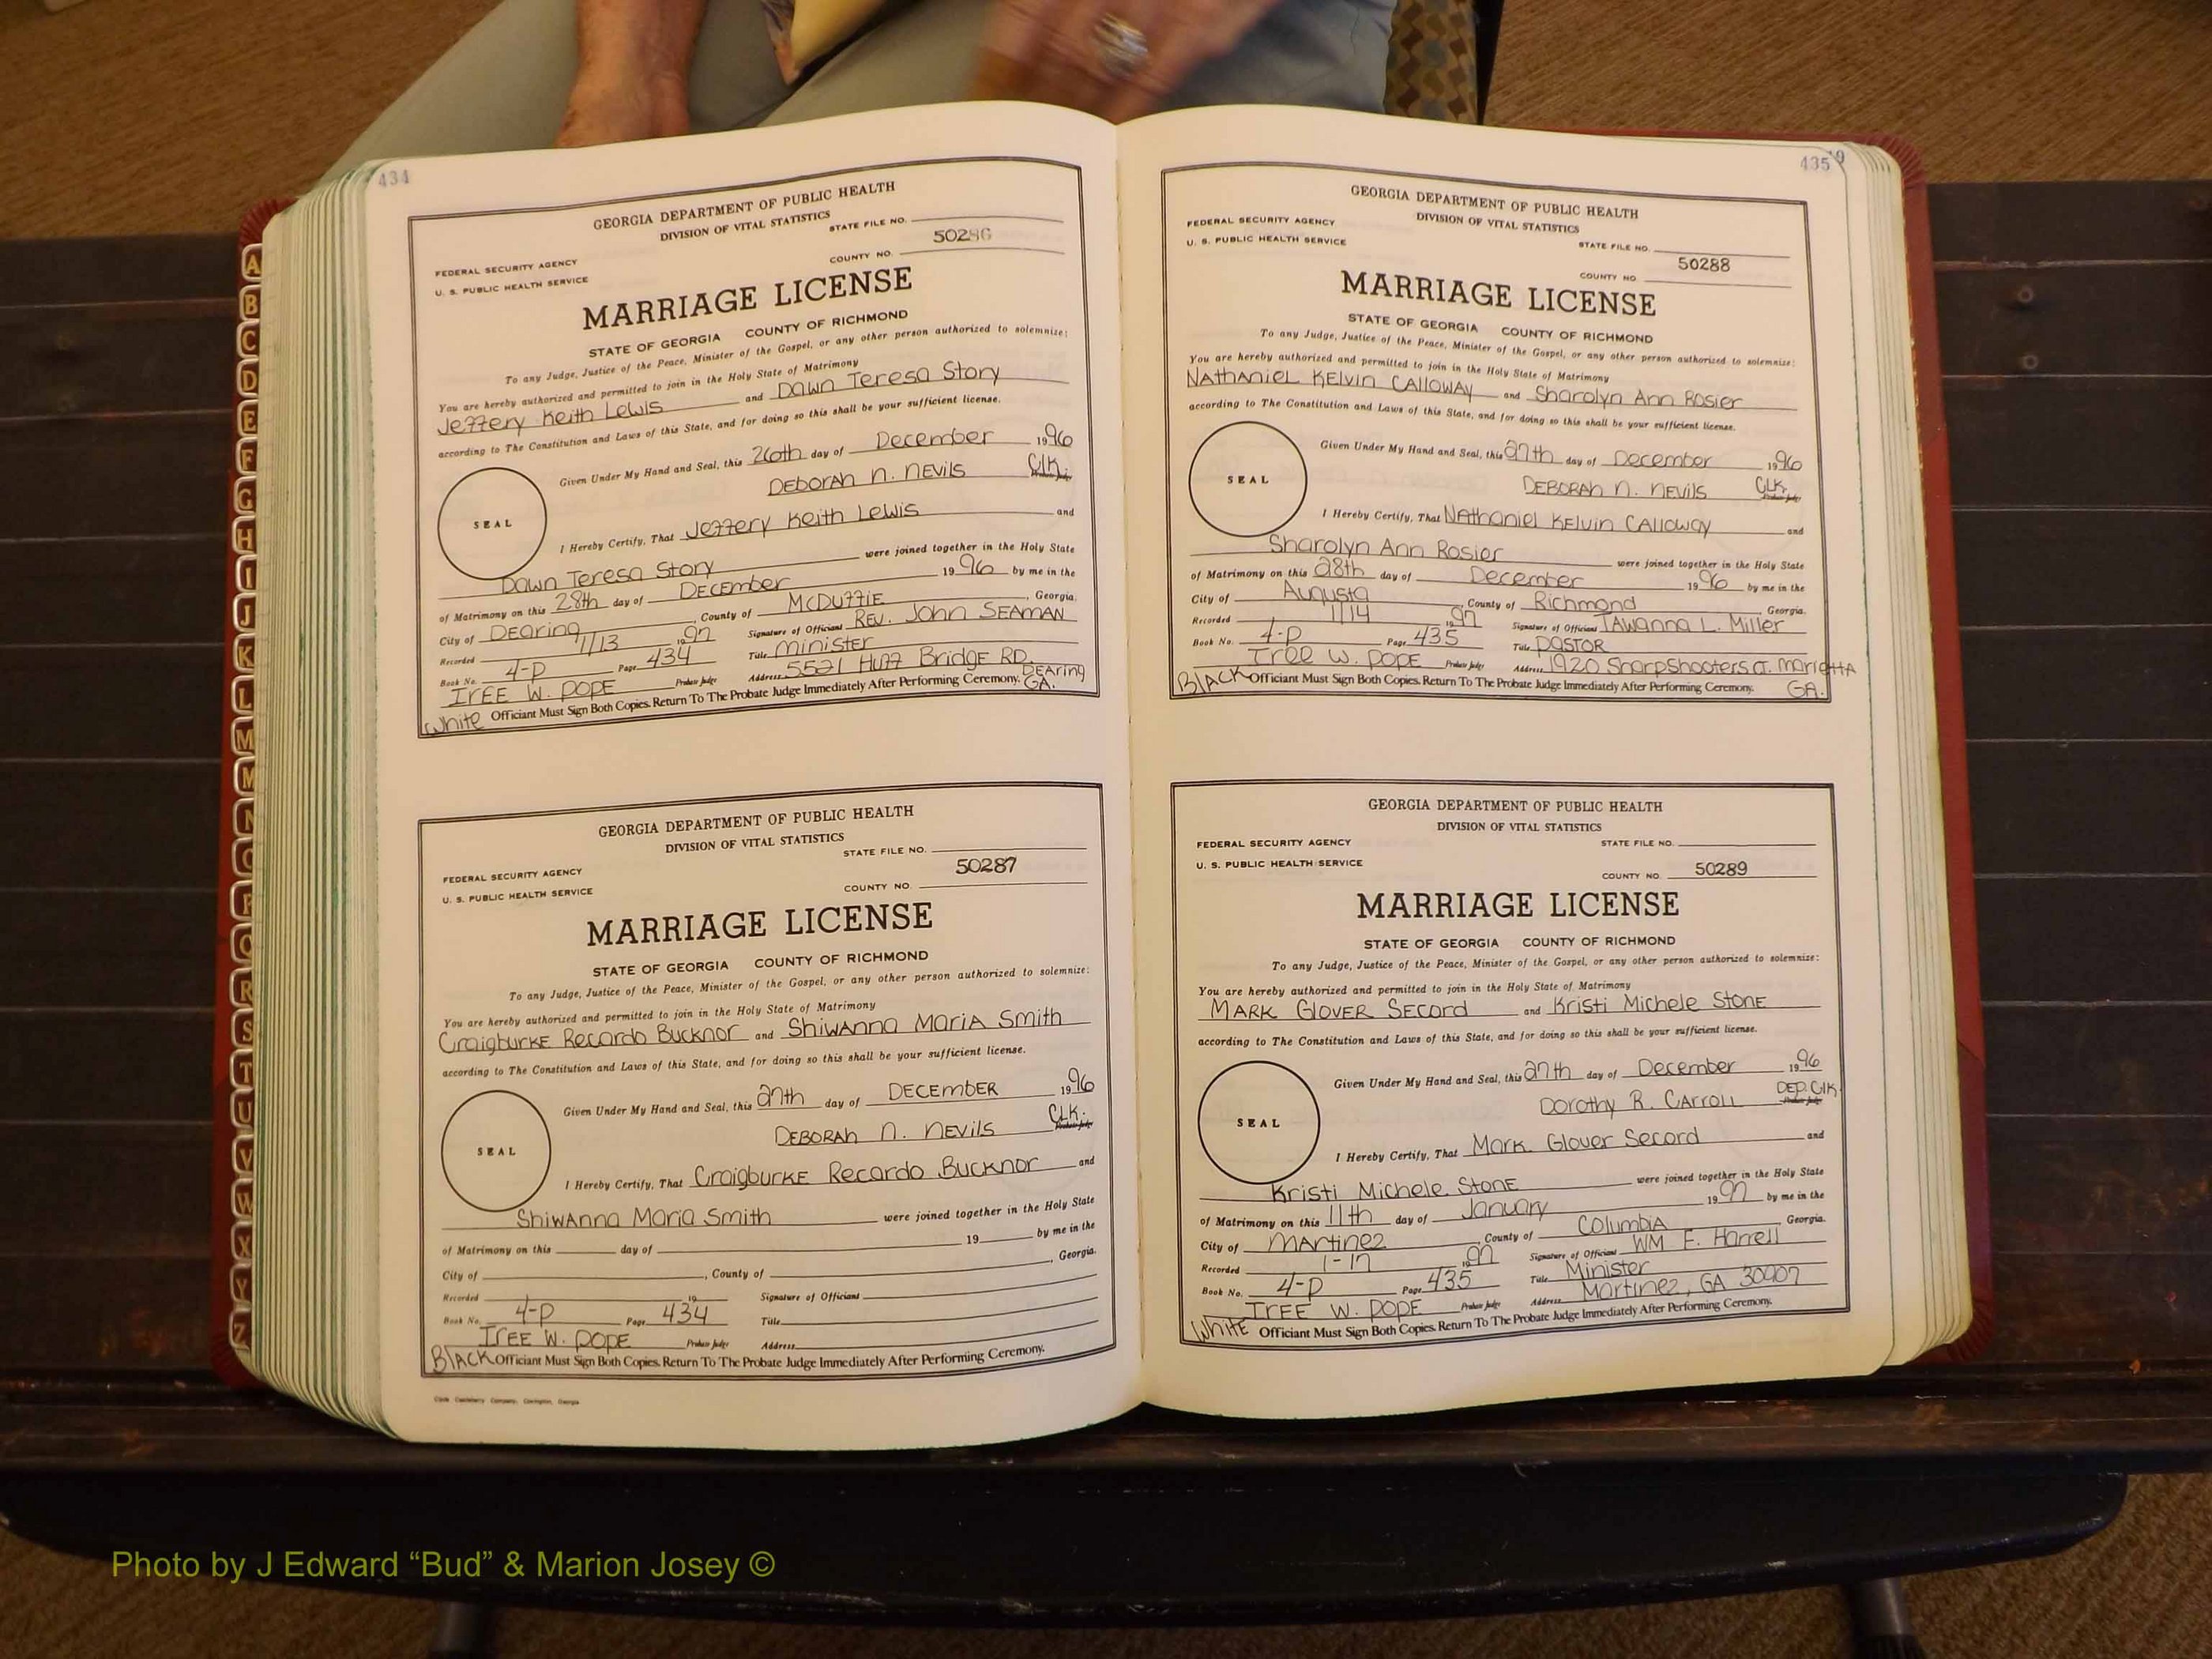 434
GEORGIA DEPARTMENT OF PUBLIC HEALTH
DIVISION OF VITAL STATISTICS
STATE FILE NO.
FEDERAL SECURITY AGENCY
50286
U. S. PUBLIC HEALTH SERVICE
COUNTY NO.
MARRIAGE LICENSE
STATE OF GEORGIA COUNTY OF RICHMOND
To any Judge, Justice of the Peace, Minister of the Gospel, or any other person authorized to solemnize:
You are hereby authorized and permitted to join in the Holy State of Matrimony
Jeffery Keith Lewis and Dawn Teresa Story
according to The Constitution and Laws of this State, and for doing so this shall be your sufficient license.
Given Under My Hand and Seal, this 26th day of December 1996
DEBORAH N. NEVILS CLK. Probate Judge
SEAL
I Hereby Certify, That Jeffery Keith Lewis and
Dawn Teresa Story were joined together in the Holy State
of Matrimony on this 28th day of DECEMBER 1996 by me in the
City of DEaring, County of MCDUFFIE, Georgia.
Recorded 1/13 1997 Signature of Officiant REV. John SEAMAN
Book No. 4-P Page 434 Title Minister
IREE W. POPE Probate Judge Address 5521 HUFF BRIDGE RD. DEARING GA.
White Officiant Must Sign Both Copies. Return To The Probate Judge Immediately After Performing Ceremony.
GEORGIA DEPARTMENT OF PUBLIC HEALTH
DIVISION OF VITAL STATISTICS
STATE FILE NO.
FEDERAL SECURITY AGENCY
50287
U. S. PUBLIC HEALTH SERVICE
COUNTY NO.
MARRIAGE LICENSE
STATE OF GEORGIA COUNTY OF RICHMOND
To any Judge, Justice of the Peace, Minister of the Gospel, or any other person authorized to solemnize:
You are hereby authorized and permitted to join in the Holy State of Matrimony
CraigburKE Recardo Bucknor and ShiwAnna MariA Smith
according to The Constitution and Laws of this State, and for doing so this shall be your sufficient license.
Given Under My Hand and Seal, this 27th day of DECEMBER 1996
DEBORAH N. NEVILS CLK. Probate Judge
SEAL
I Hereby Certify, That CraigburKE Recardo Bucknor and
ShiwAnna Maria Smith were joined together in the Holy State
of Matrimony on this day of 19 by me in the
City of , County of , Georgia.
Recorded 19 Signature of Officiant
Book No. 4-P Page 434 Title
IREE W. POPE Probate Judge Address
BLACK Officiant Must Sign Both Copies. Return To The Probate Judge Immediately After Performing Ceremony.
Clyde Castleberry Company, Covington, Georgia
435
GEORGIA DEPARTMENT OF PUBLIC HEALTH
DIVISION OF VITAL STATISTICS
FEDERAL SECURITY AGENCY
STATE FILE NO.
U. S. PUBLIC HEALTH SERVICE
50288
COUNTY NO.
MARRIAGE LICENSE
STATE OF GEORGIA COUNTY OF RICHMOND
To any Judge, Justice of the Peace, Minister of the Gospel, or any other person authorized to solemnize:
You are hereby authorized and permitted to join in the Holy State of Matrimony
NAthaniEL KELvin CALLOWAY and Sharolyn Ann Rosier
according to The Constitution and Laws of this State, and for doing so this shall be your sufficient license.
Given Under My Hand and Seal, this 27th day of December 1996
DEBORAH N. NEVILS CLK. Probate Judge
SEAL
I Hereby Certify, That NAthaniel KElvin CAlloway and
Sharolyn Ann Rosier were joined together in the Holy State
of Matrimony on this 28th day of December 1996 by me in the
City of Augusta, County of Richmond, Georgia.
Recorded 1/14 1997 Signature of Officiant TAwanna L. Miller
Book No. 4-P Page 435 Title PASTOR
Iree W. POPE Probate Judge Address 1920 Sharpshooters Ct. MariETTA GA.
BLACK Officiant Must Sign Both Copies. Return To The Probate Judge Immediately After Performing Ceremony.
GEORGIA DEPARTMENT OF PUBLIC HEALTH
DIVISION OF VITAL STATISTICS
FEDERAL SECURITY AGENCY
STATE FILE NO.
U. S. PUBLIC HEALTH SERVICE
COUNTY NO. 50289
MARRIAGE LICENSE
STATE OF GEORGIA COUNTY OF RICHMOND
To any Judge, Justice of the Peace, Minister of the Gospel, or any other person authorized to solemnize:
You are hereby authorized and permitted to join in the Holy State of Matrimony
MARK GLOVER SECord and Kristi Michele StonE
according to The Constitution and Laws of this State, and for doing so this shall be your sufficient license.
Given Under My Hand and Seal, this 27th day of December 1996
Dorothy R. CArroll DEP. CLK. Probate Judge
SEAL
I Hereby Certify, That Mark Glover Secord and
Kristi Michele StonE were joined together in the Holy State
of Matrimony on this 11th day of January 1997 by me in the
City of MArtinez, County of COlumbiA, Georgia.
Recorded 1-17 1997 Signature of Officiant WM E. Harrell
Book No. 4-P Page 435 Title Minister
IREE W. POPE Probate Judge Address Martinez, GA 30907
White Officiant Must Sign Both Copies. Return To The Probate Judge Immediately After Performing Ceremony.
A
B
C
D
E
F
G
H
I
J
K
L
M
M
N
O
P
Q
R
S
T
U
V
W
X
Y
Z
Photo by J Edward “Bud” & Marion Josey ©